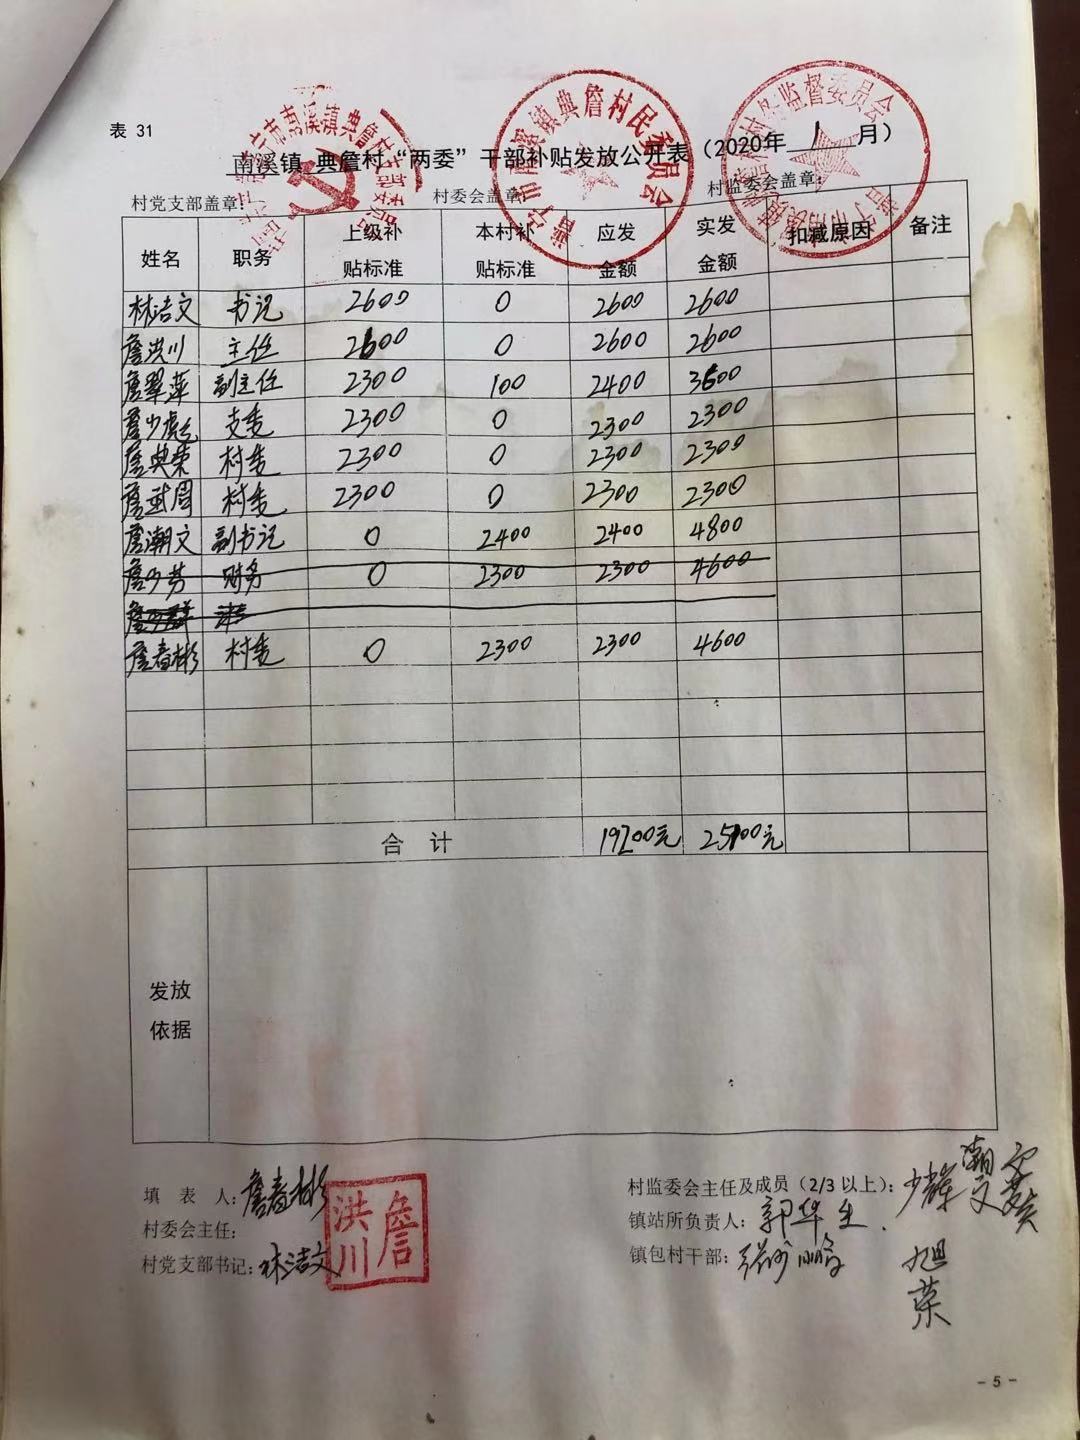 表 31
南溪镇 典詹村“两委”干部补贴发放公开表（2020年 1 月）
村党支部盖章： 村委会盖章： 村监委会盖章：
姓名 职务 上级补贴标准 本村补贴标准 应发金额 实发金额 扣减原因 备注
林洁文 书记 2600 0 2600 2600
詹洪川 主任 2600 0 2600 2600
詹翠萍 副主任 2300 100 2400 3600
詹少彪 支委 2300 0 2300 2300
詹典荣 村委 2300 0 2300 2300
詹武周 村委 2300 0 2300 2300
詹潮文 副书记 0 2400 2400 4800
詹少芬 财务 0 2300 2300 4600
詹春彬 村委 0 2300 2300 4600
合 计 19200元 25100元
发放依据
填 表 人：詹春彬
村委会主任：
村党支部书记：林洁文
詹洪川
村监委会主任及成员（2/3 以上）：少群 潮文
镇站所负责人：郭华生
镇包村干部：
旭荣
- 5 -